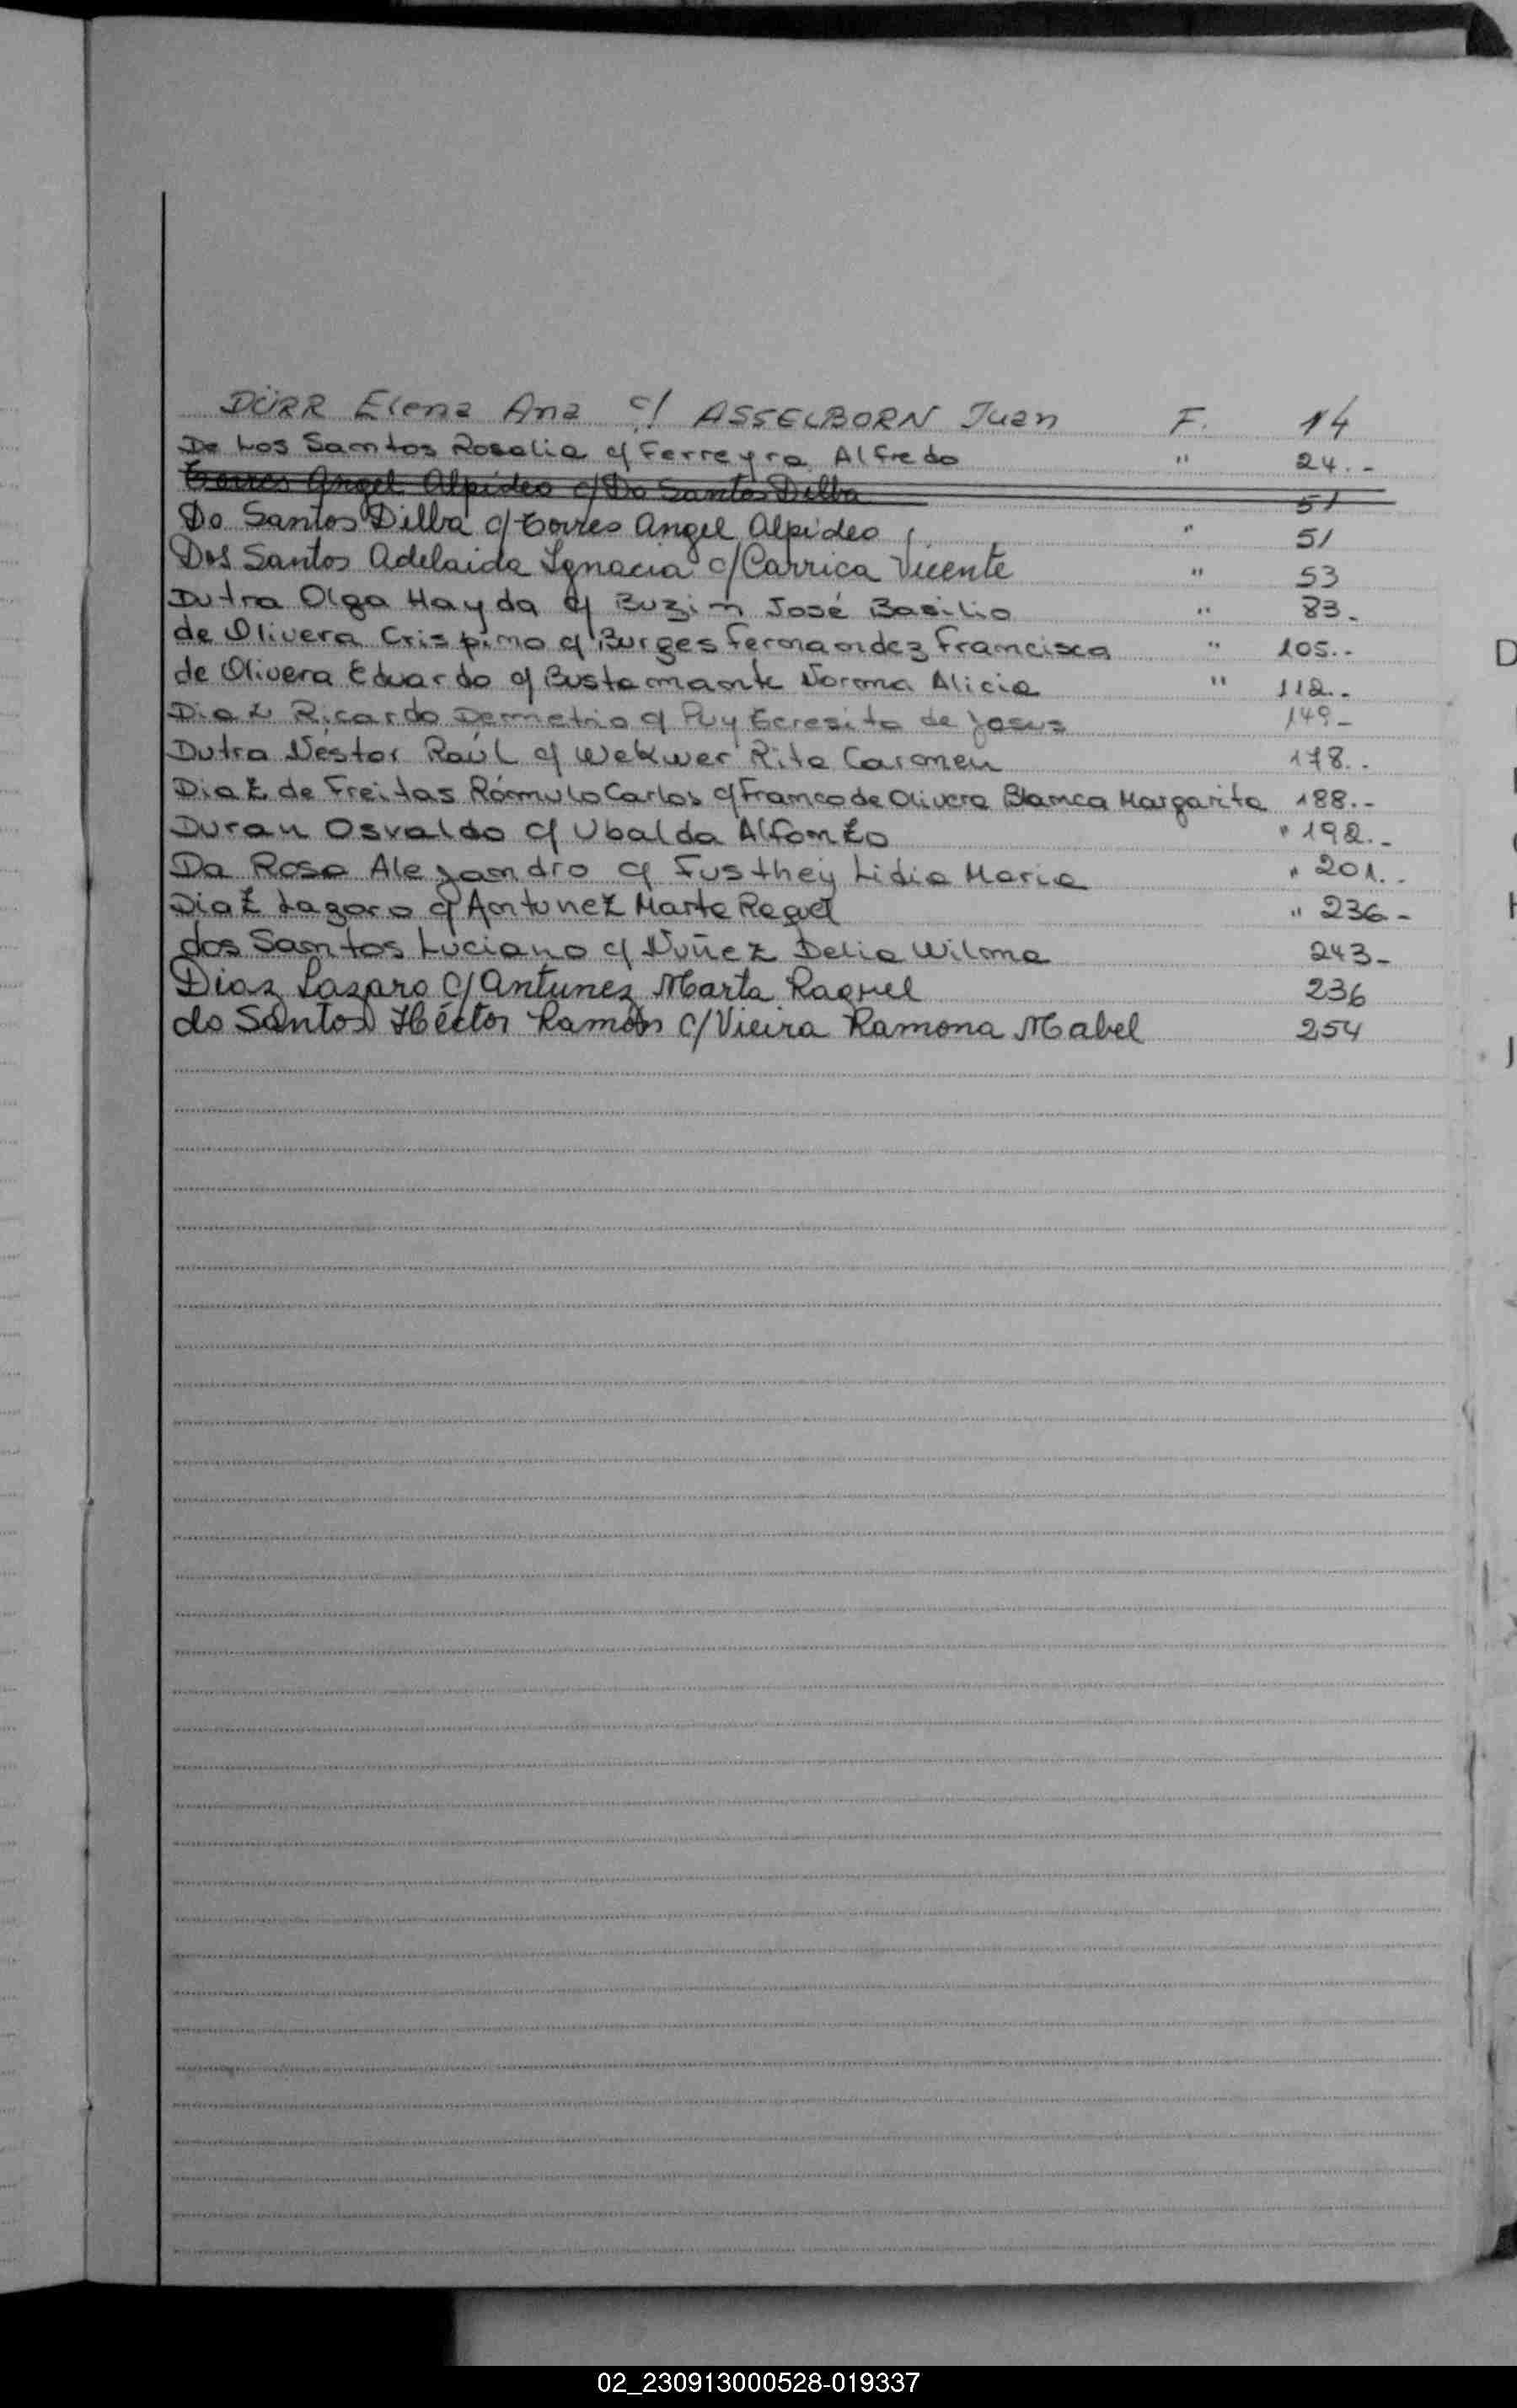 DÜRR Elena Ana c/ ASSELBORN Juan F. 14
De Los Santos Rosalia c/ Ferreyra Alfredo " 24.-
Torres Angel Alpideo c/ Do Santos Dilba 51
Do Santos Dilba c/ Torres Angel Alpideo " 51
Dos Santos Adelaida Ignacia c/ Carrica Vicente " 53
Dutra Olga Hayda c/ Buzin José Basilio " 83.
de Olivera Crispino c/ Burges Fernandez Francisca " 105.-
de Olivera Eduardo c/ Bustamante Norma Alicia " 112.-
Diaz Ricardo Demetrio c/ Puy Teresita de Jesus 149-
Dutra Néstor Raúl c/ Wekwer Rita Carmen 178.-
Diaz de Freitas Rómulo Carlos c/ Franco de Olivera Blanca Margarita 188.-
Duran Osvaldo c/ Ubalda Alfonzo " 192.-
Da Rosa Alejandro c/ Fusthey Lidia Maria " 201.-
Diaz Lazaro c/ Antunez Marta Raquel " 236-
dos Santos Luciano c/ Nuñez Delia Wilma 243-
Diaz Lazaro c/ Antunez Marta Raquel 236
do Santos Héctor Ramón c/ Vieira Ramona Mabel 254
D
H
J
02_230913000528-019337